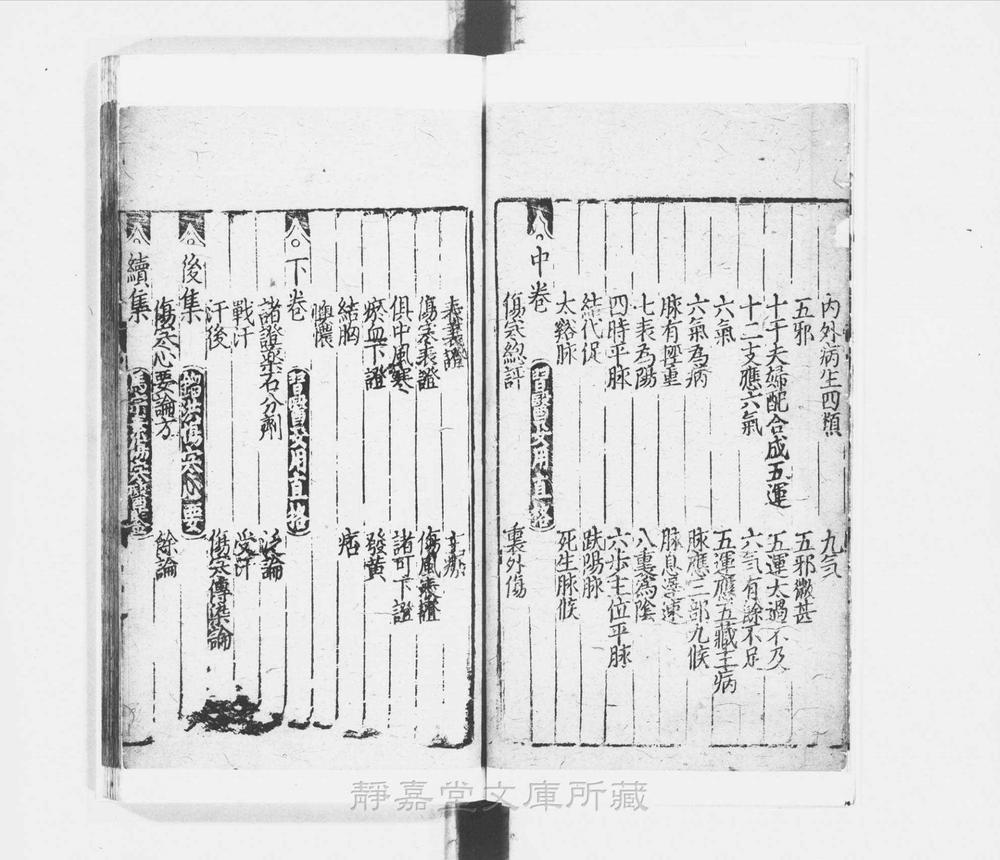 内外病生四類　九气
五邪　五邪微甚
十干夫婦配合成五運　五運太過不及
十二支應六氣　六气有餘不足
六氣　五運應五藏主病
六氣為病　脉應三部九候
脉有輕重　脉息遲速
七表為陽　八裏為陰
四時平脉　六步主位平脉
結代促　趺陽脉
太谿脉　死生脉候
中卷　習醫要用直格
傷寒緫評　裏外傷
表裏證
傷寒表證　傷風表證
俱中風寒　諸可下證
瘀血下證　發黄
結胸　痞
懊憹
下卷　習醫要用直格
諸證藥石分劑　泛論
戰汗　受汗
汗後　傷寒傳染論
後集　鎦洪傷寒心要
傷寒心要論方　餘論
續集　馬宗素傷寒醫鑒
靜嘉堂文庫所藏